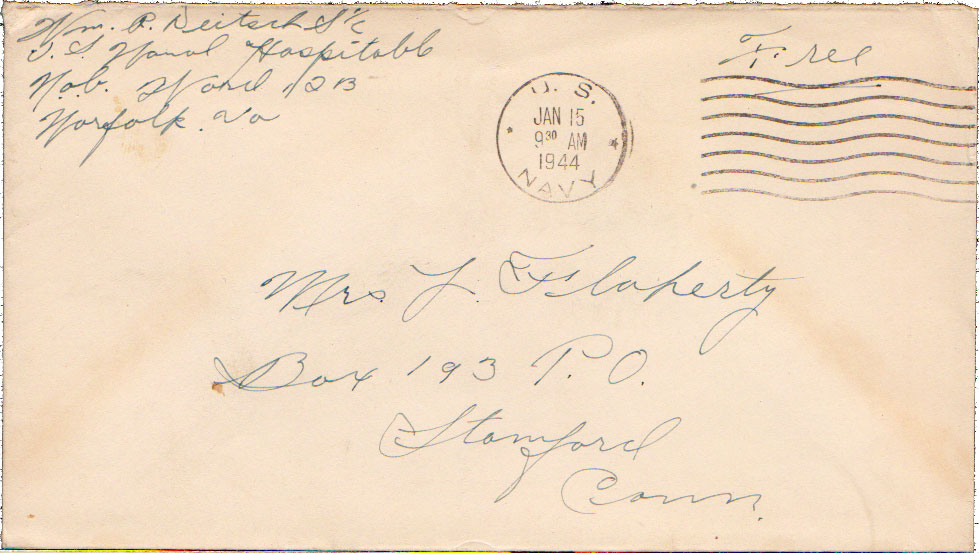 Wm. P. Deitsch S1/c
U. S. Naval Hospitall
N.o.b. Ward 12B
Norfolk. Va
Free
U. S.
JAN 15
9 30 AM
1944
NAVY
Mrs L Flaherty
Box 193 P.O.
Stamford
Conn.